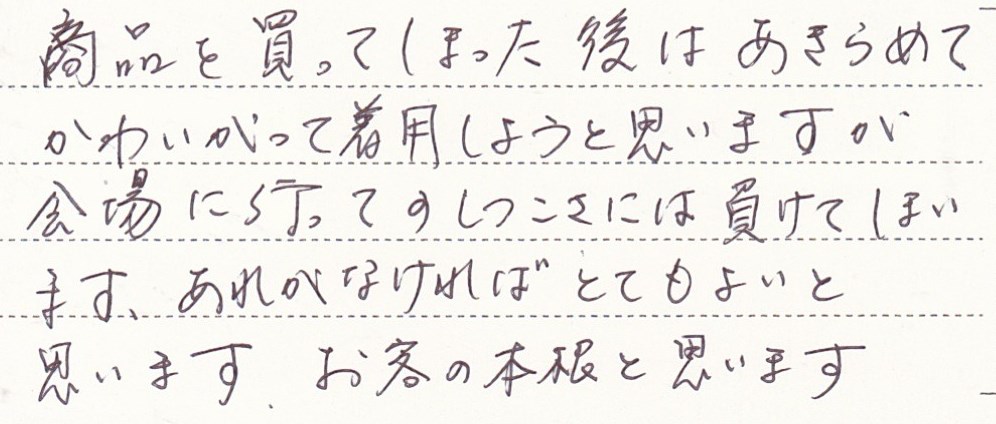 商品を買ってしまった後はあきらめて
かわいがって着用しようと思いますが
会場に行ってのしつこさには負けてしまい
ます、あれがなければとてもよいと
思います. お客の本根と思います